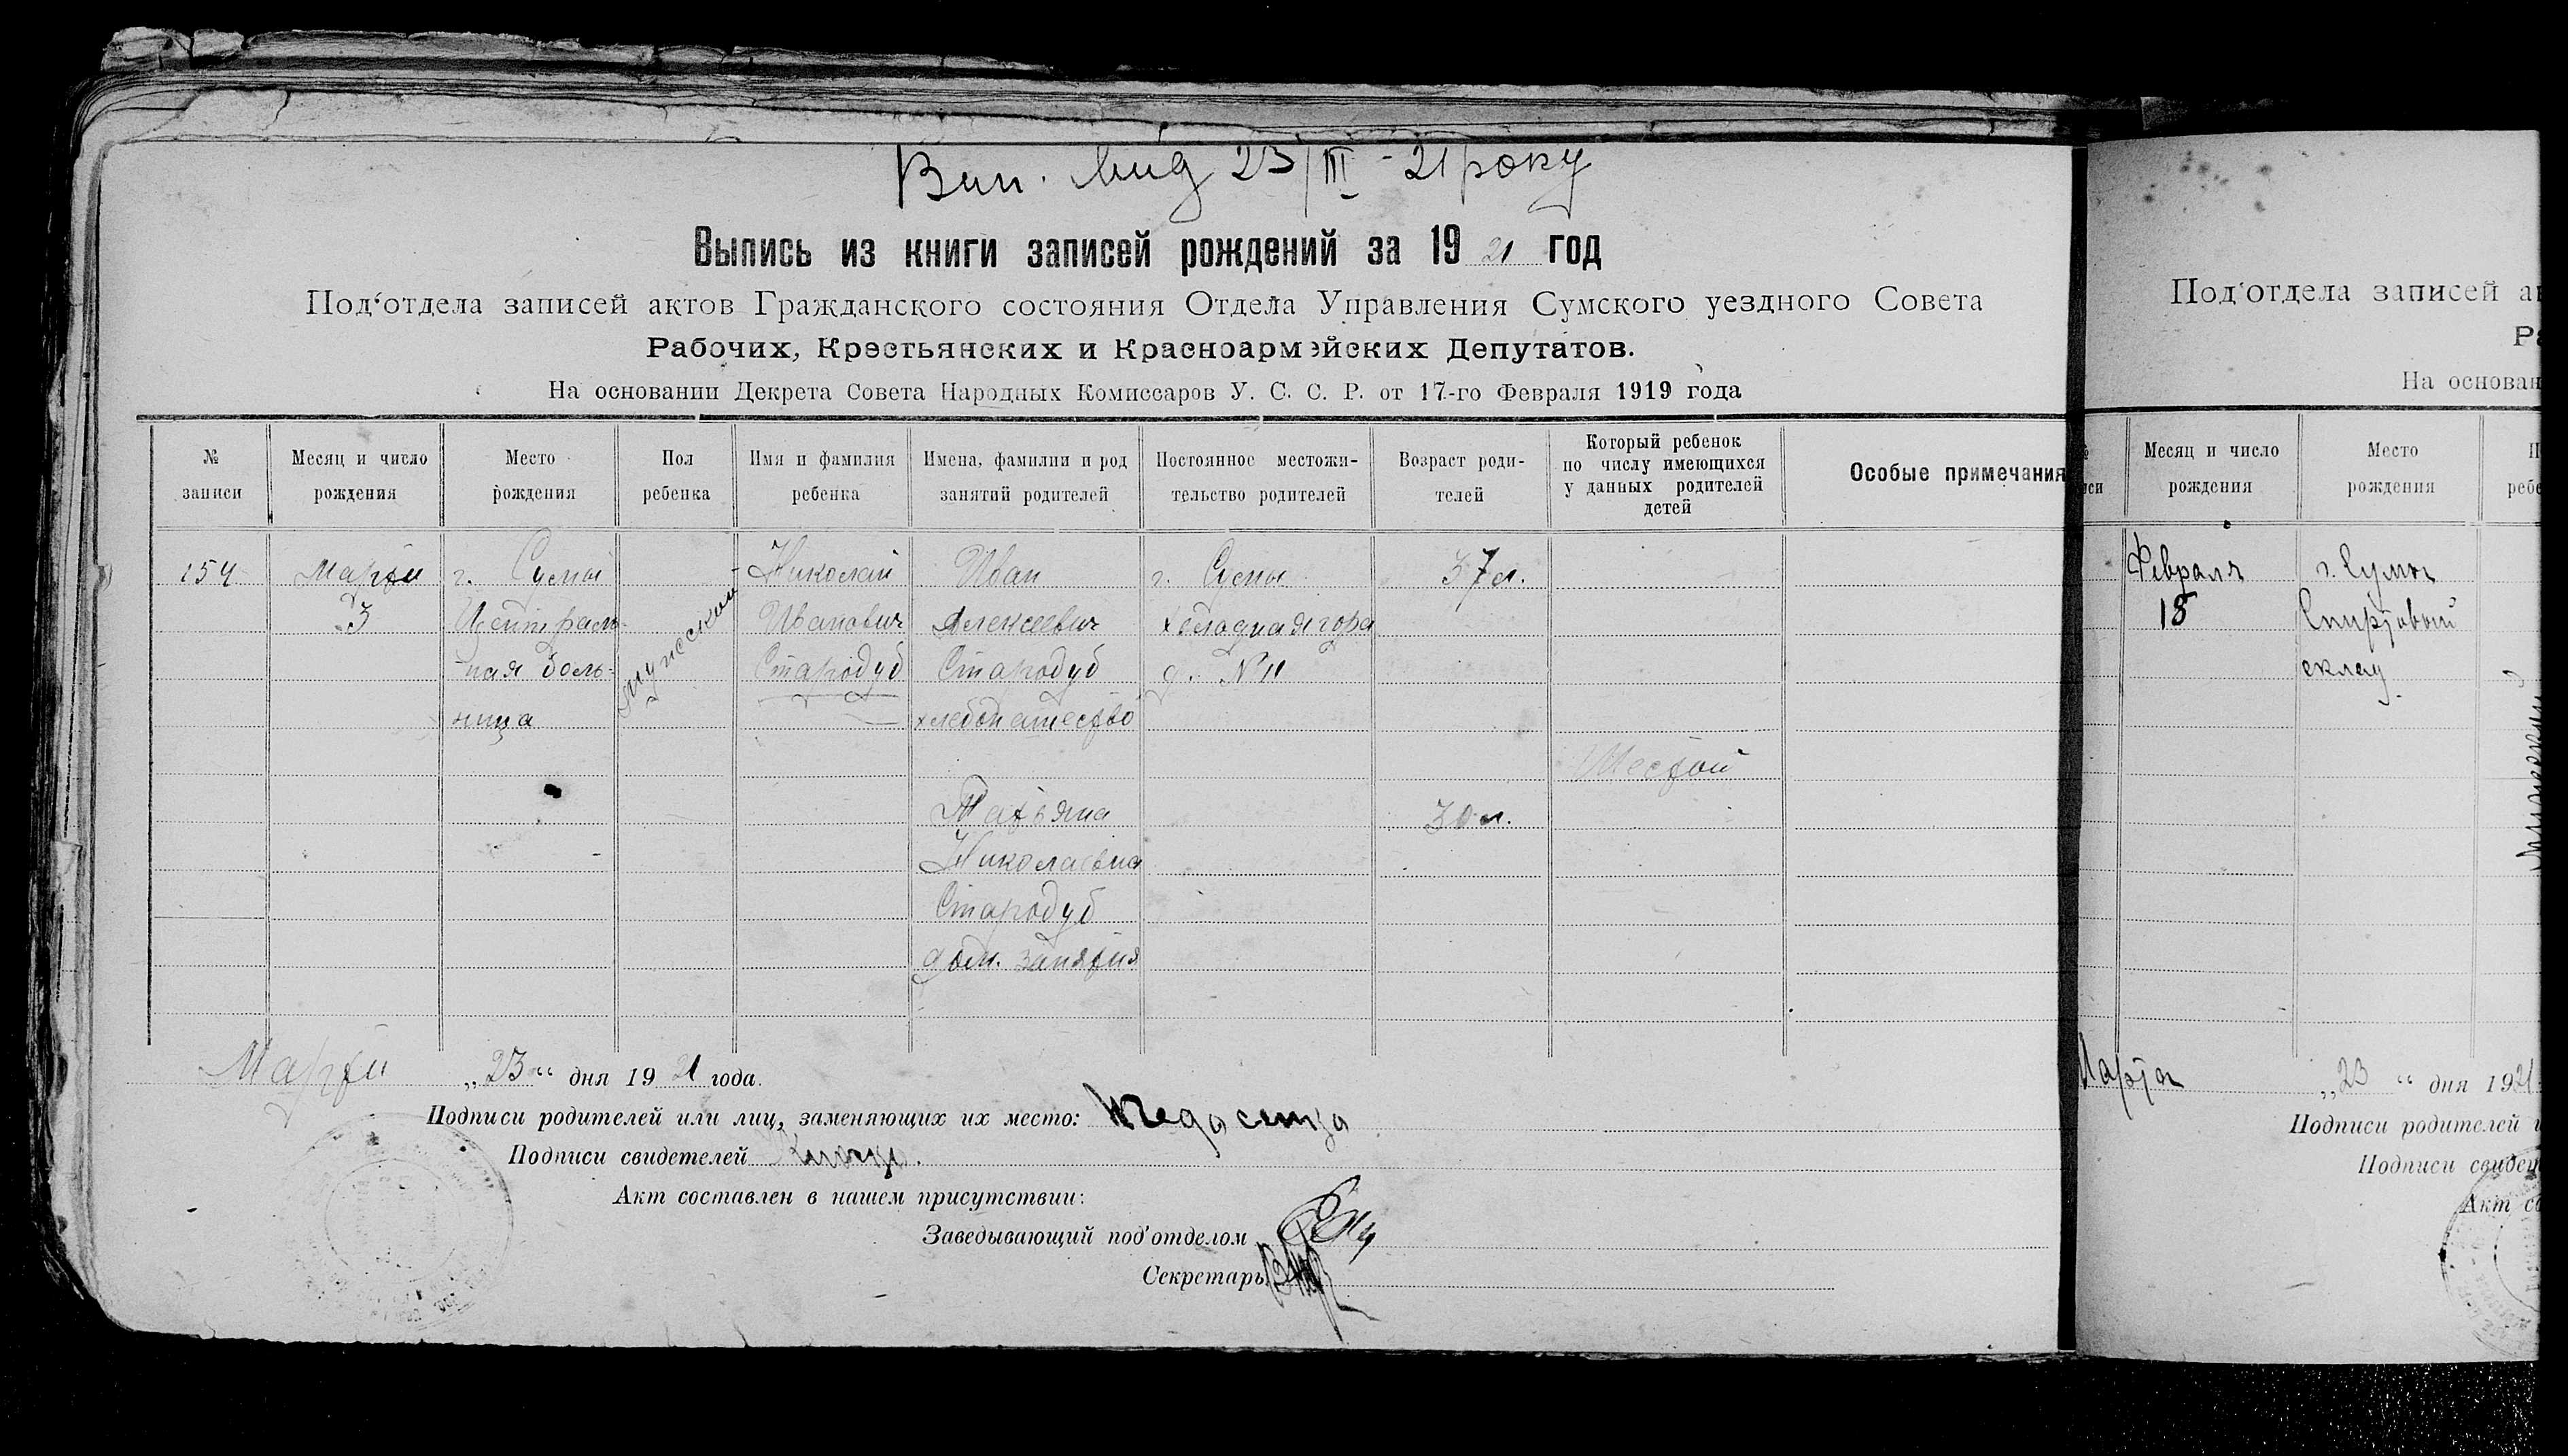 Вип. від 23/III - 21 року
Выпись из книги записей рождений за 1921 год
Под‘отдела записей актов Гражданского состояния Отдела Управления Сумского уездного Совета
Рабочих, Крестьянских и Красноармейских Депутатов.
На основании Декрета Совета Народных Комиссаров У. С. С. Р. от 17-го Февраля 1919 года
№ записи
Месяц и число рождения
Место рождения
Пол ребенка
Имя и фамилия ребенка
Имена, фамилии и род занятий родителей
Постоянное местожительство родителей
Возраст родителей
Который ребенок по числу имеющихся у данных родителей детей
Особые примечания
154
Марта
3
г. Сумы
Централь-
ная боль-
ница
мужеский
Николай
Иванович
Стародуб
Иван
Алексеевич
Стародуб
хлебопашество
г. Сумы
холодная гора
д. № 11
37 л.
Шестой
Татьяна
Николаевна
Стародуб
дом. занятия
30 л.
Марта „23“ дня 1921 года.
Подписи родителей или лиц, заменяющих их место:
Подписи свидетелей
Акт составлен в нашем присутствии:
Заведывающий под‘отделом
Секретарь
Под‘отдела записей
На основан
Месяц и число рождения
Место рождения
Февраля
18
г. Сумы
Спиртовый
склад
Марта „23“ дня 1921
Подписи родителей
Подписи свидет
Акт со